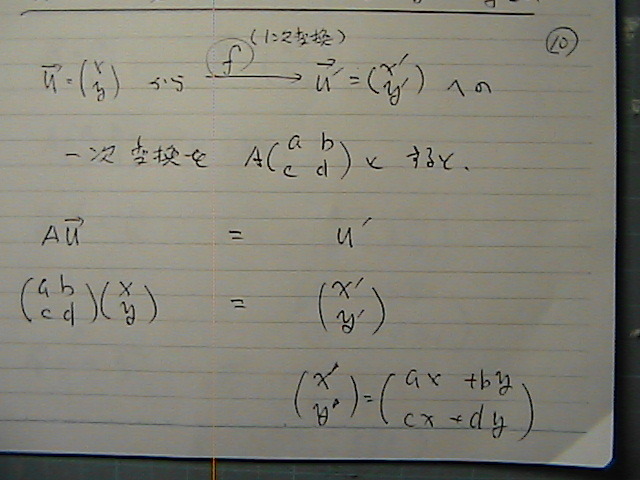 (1次変換) ⑩
u⃗ = (x y) から f → u⃗′ = (x′ y′) への
一次変換を A(a b c d) とすると、
Au⃗ = u′
(a b c d)(x y) = (x′ y′)
(x′ y′) = (ax + by cx + dy)